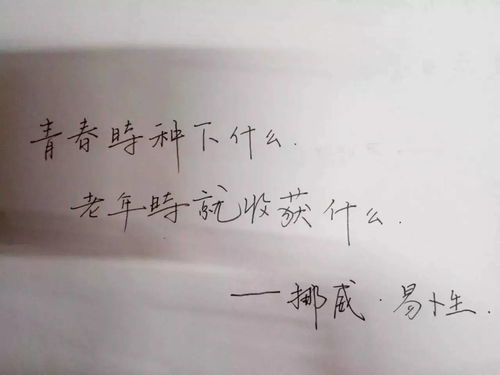 青春時种下什么.
老年時就收获什么.
——挪威·易卜生.